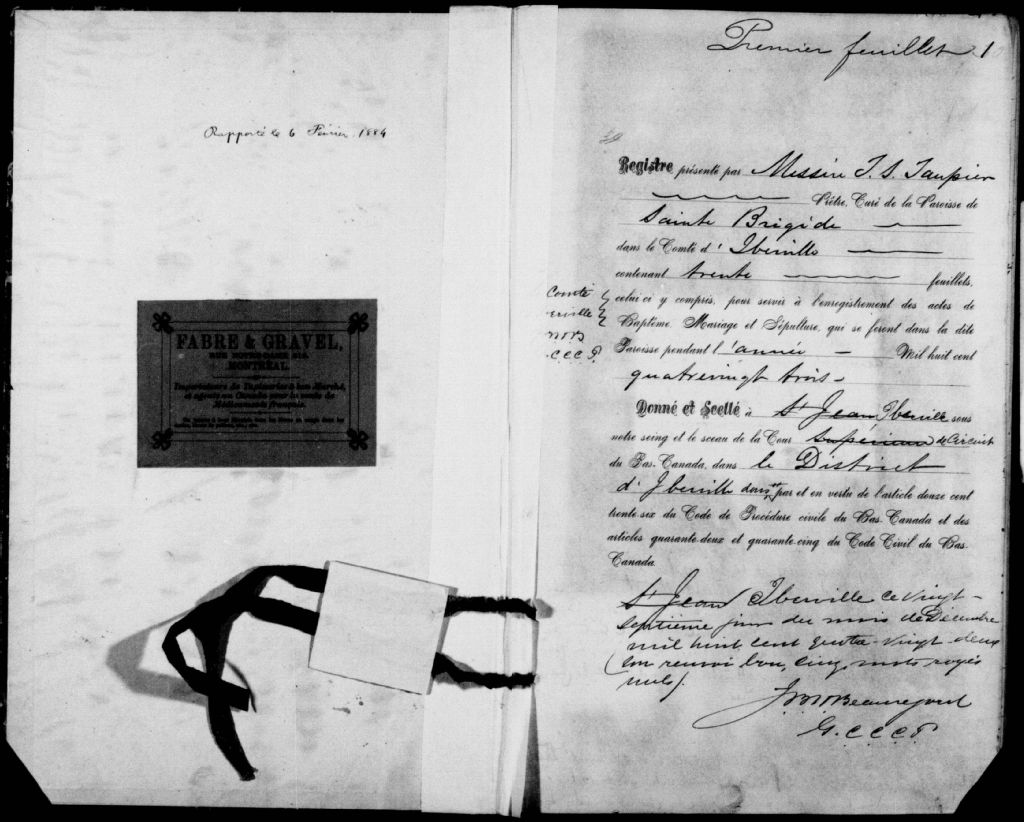 Rapporté le 6 Février 1884
FABRE & GRAVEL,
RUE NOTRE-DAME
MONTREAL.
Importateurs de Tapisseries à bon Marché,
et agents au Canada pour la vente de
Médicaments français.
Premier feuillet 1
Registre présenté par Messire J. S. Taupier
Prêtre, Curé de la Paroisse de
Sainte Brigide
dans le Comté d' Iberville
contenant trente feuillets,
celui ci y compris, pour servir à l'enregistrement des actes de
Baptême, Mariage et Sépulture, qui se feront dans la dite
Paroisse pendant l'année Mil huit cent
quatrevingt trois
Comté
erville
C.C.C.P.
Donné et Scellé à St Jean Iberville sous
notre seing et le sceau de la Cour Supérieure de Circuit
du Bas-Canada, dans le District
d'Iberville par et en vertu de l'article douze cent
trente-six du Code de Procédure civile du Bas-Canada et des
articles quarante-deux et quarante-cinq du Code Civil du Bas-
Canada.
St Jean Iberville ce vingt-
septième jour du mois de Décembre
mil huit cent quatre-vingt deux
(un renvoi bon, cinq mots rayés
nuls).
Beauregard
G.C.C.C.P.